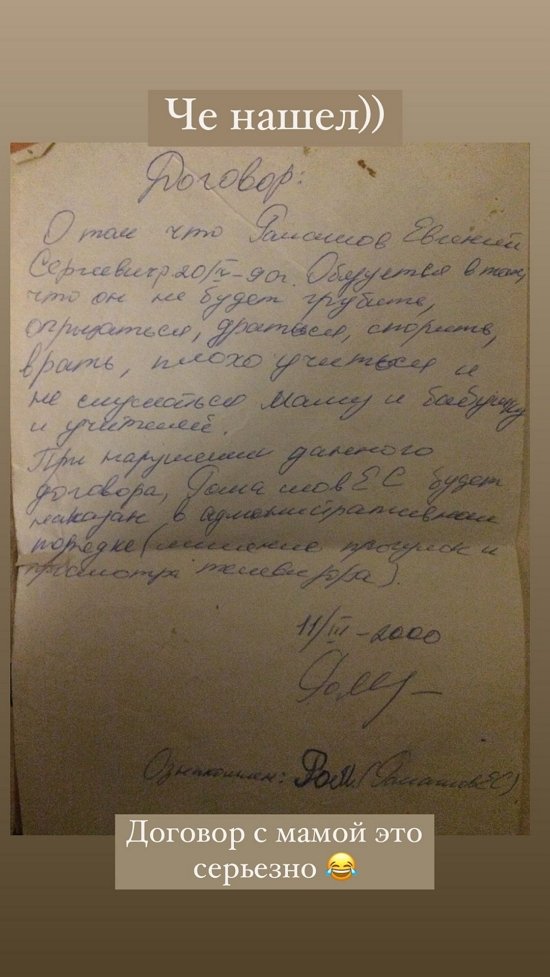 Че нашел))
Договор:
О том что Ромашов Евгений
Сергеевич 20/IV-90г. Обязуется в том,
что он не будет грубить,
огрызаться, драться, спорить,
врать, плохо учиться и
не слушаться маму и бабушку
и учителей.
При нарушении данного
договора, Ромашов ЕС будет
наказан в административном
порядке (лишение прогулок и
просмотра телевизора).
11/III-2000
Ознакомлен: Ром (Ромашов ЕС)
Договор с мамой это
серьезно 😂